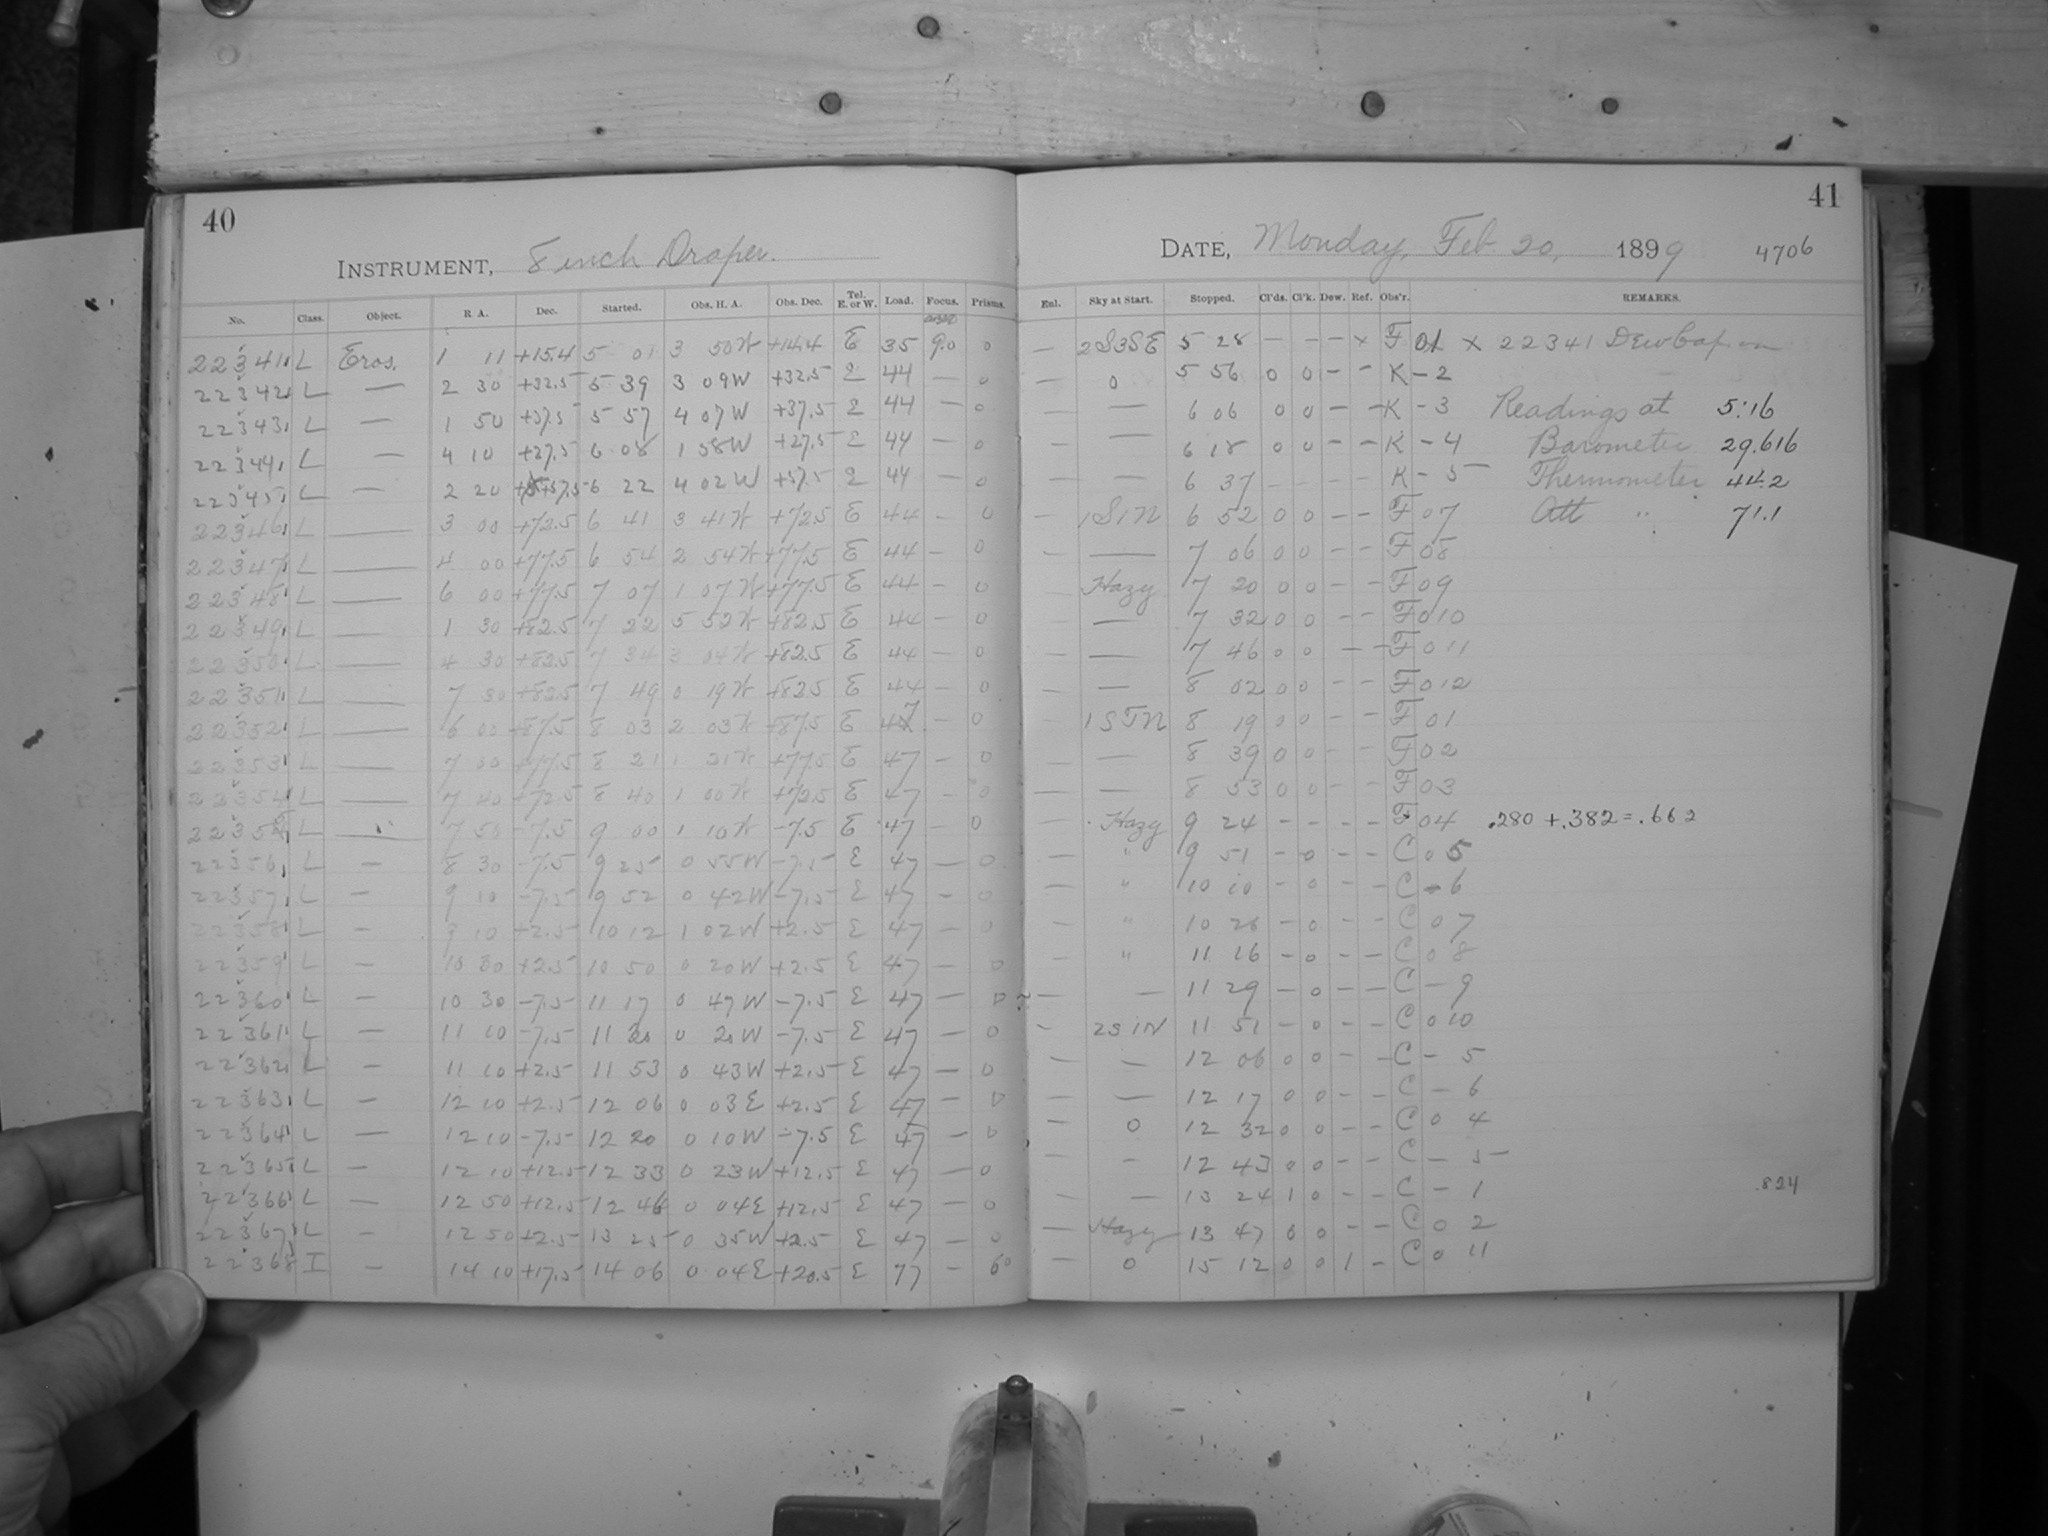 40
INSTRUMENT, 8 inch Draper.
No. Class. Object. R A. Dec. Started. Obs. H. A. Obs. Dec. Tel. E. or W. Load. Focus. Prisms.
22341 L Eros. 1 11 +15.4 5 01 3 50W +14.4 E 35 9.0 0
22342 L — 2 30 +32.5 5 39 3 09W +32.5 E 44 — 0
22343 L — 1 50 +37.5 5 57 4 07W +37.5 E 44 — 0
22344 L — 4 10 +27.5 6 08 1 58W +27.5 E 44 — 0
22345 L — 2 20 +57.5 6 22 4 02W +57.5 E 44 — 0
22346 L — 3 00 +72.5 6 41 3 41W +72.5 E 44 — 0
22347 L — 4 00 +77.5 6 54 2 54W +77.5 E 44 — 0
22348 L — 6 00 +77.5 7 07 1 07W +77.5 E 44 — 0
22349 L — 1 30 +82.5 7 22 5 52W +82.5 E 44 — 0
22350 L — 4 30 +82.5 7 34 3 04W +82.5 E 44 — 0
22351 L — 7 30 +82.5 7 49 0 19W +82.5 E 44 — 0
22352 L — 6 00 +87.5 8 03 2 03W +87.5 E 47 — 0
22353 L — 7 00 +77.5 8 21 1 21W +77.5 E 47 — 0
22354 L — 7 40 +72.5 8 40 1 00W +72.5 E 47 — 0
22355 L — 7 50 -7.5 9 00 1 10W -7.5 E 47 — 0
22356 L — 8 30 -7.5 9 25 0 55W -7.5 E 47 — 0
22357 L — 9 10 -7.5 9 52 0 42W -7.5 E 47 — 0
22358 L — 9 10 +2.5 10 12 1 02W +2.5 E 47 — 0
22359 L — 10 30 +2.5 10 50 0 20W +2.5 E 47 — 0
22360 L — 10 30 -7.5 11 17 0 47W -7.5 E 47 — 0
22361 L — 11 10 -7.5 11 30 0 20W -7.5 E 47 — 0
22362 L — 11 10 +2.5 11 53 0 43W +2.5 E 47 — 0
22363 L — 12 10 +2.5 12 06 0 03E +2.5 E 47 — 0
22364 L — 12 10 -7.5 12 20 0 10W -7.5 E 47 — 0
22365 L — 12 10 +12.5 12 33 0 23W +12.5 E 47 — 0
22366 L — 12 50 +12.5 12 46 0 04E +12.5 E 47 — 0
22367 L — 12 50 +2.5 13 25 0 35W +2.5 E 47 — 0
22368 I — 14 10 +17.5 14 06 0 04E +20.5 E 77 — 60
41
DATE, Monday, Feb. 20, 1899 4706
Enl. Sky at Start. Stopped. Cl'ds. Cl'k. Dew. Ref. Obs'r. REMARKS.
— 2S3SE 5 28 — — — x F 01 x 22341 Dew Cap on
— 0 5 56 0 0 - - K - 2
— — 6 06 0 0 - - K - 3 Readings at 5:16
— — 6 18 0 0 - - K - 4 Barometer 29.616
— — 6 37 - - - - K - 5 Thermometer 44.2
— 1S1N 6 52 0 0 - - F 07 Att " 71.1
— — 7 06 0 0 - - F 08
— Hazy 7 20 0 0 - - F 09
— — 7 32 0 0 - - F 010
— — 7 46 0 0 - - F 011
— — 8 02 0 0 - - F 012
— 1STN 8 19 0 0 - - F 01
— — 8 39 0 0 - - F 02
— — 8 53 0 0 - - F 03
— Hazy 9 24 - - - - F 04 .280 + .382 = .662
— " 9 51 - 0 - - C 0 5
— " 10 10 - 0 - - C - 6
— " 10 26 - 0 - - C 0 7
— " 11 16 - 0 - - C 0 8
— — 11 29 - 0 - - C - 9
— 2S1N 11 51 - 0 - - C 0 10
— — 12 06 0 0 - - C - 5
— — 12 17 0 0 - - C - 6
— 0 12 32 0 0 - - C 0 4
— — 12 43 0 0 - - C - 5
— — 13 24 1 0 - - C - 1 .824
— Hazy 13 47 0 0 - - C 0 2
— 0 15 12 0 0 1 - C 0 11